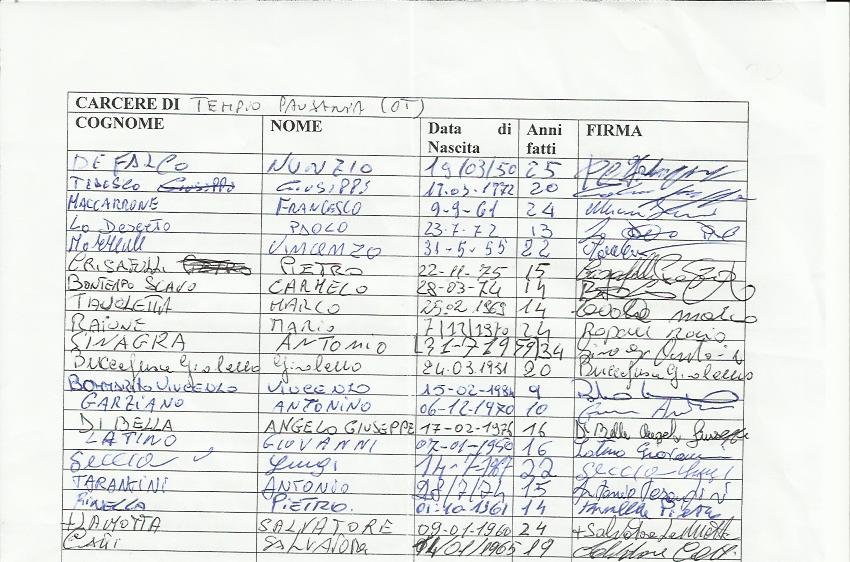 CARCERE DI TEMPIO PAUSANIA (OT)
COGNOME NOME Data di Nascita Anni fatti FIRMA
DE FALCO NUNZIO 19/03/50 25
TEDESCO GIUSEPPE 20
MACCARRONE FRANCESCO 9-9-61 24
LO DESERTO PAOLO 23.7.72 13
VINCENZO 31-5-55 22
CRISAFULLI PIETRO PIETRO 22-11-75 15
BONTEMPO SCAVO CARMELO 28-03-74 14
TAVOLETTA MARCO 25.02.1969 14
RAIONE MARIO 7/12/1970 24
SINAGRA ANTONIO 34
Buccafusca Giolello Giolello 24.03.1951 20 Buccafusca Giolello
BOMMARITO VINCENZO VINCENZO 9
GARZIANO ANTONINO 06-12-1970 10
DI BELLA ANGELO GIUSEPPE 17-02-1974 16 Di Bella Angelo Giuseppe
LATINO GIOVANNI 07-01-1950 16 Latino Giovanni
Seccia Luigi 14-7-1967 22 Seccia Luigi
TARANTINI ANTONIO 28/7/74 15 Antonio Tarantini
RINELLA PIETRO. 01-10-1961 14
+LAMOTTA SALVATORE 09-01-1960 24 +Salvatore La Motta
SALVATORE /01/1965 19